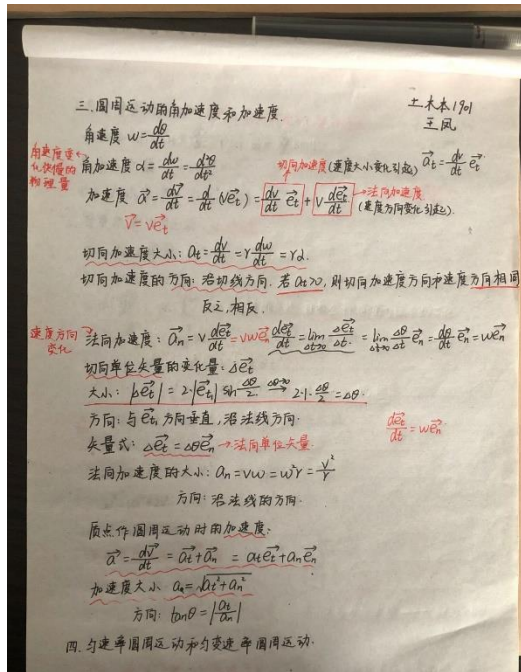 土木本1901
王凤
三.圆周运动的角加速度和加速度.
角速度 w=dθ/dt
角速度变化快慢的物理量
角加速度 α=dw/dt=d²θ/dt²
切向加速度(速度大小变化引起) a⃗t=dv/dt e⃗t
加速度 a⃗=dv⃗/dt=d/dt(ve⃗t)=dv/dt e⃗t+v de⃗t/dt →法向加速度(速度方向变化引起).
v⃗=ve⃗t
切向加速度大小: at=dv/dt=r dw/dt=rα.
切向加速度的方向: 沿切线方向. 若at>0, 则切向加速度方向和速度方向相同
反之, 相反.
速度方向变化
法向加速度: a⃗n=v de⃗t/dt=vwe⃗n de⃗t/dt=lim Δt→0 Δe⃗t/Δt=lim Δt→0 Δθ/Δt e⃗n=dθ/dt e⃗n=we⃗n
切向单位矢量的变化量: Δe⃗t
大小: |Δe⃗t|=2·|e⃗t₁| sin Δθ/2 Δθ→0→ 2·1·Δθ/2=Δθ.
方向: 与e⃗t₁方向垂直, 沿法线方向.
de⃗t/dt=we⃗n
矢量式: Δe⃗t=Δθe⃗n →法向单位矢量
法向加速度的大小: an=vw=w²r=v²/r
方向: 沿法线的方向.
质点作圆周运动时的加速度:
a⃗=dv⃗/dt=a⃗t+a⃗n=ate⃗t+ane⃗n
加速度大小 a=√at²+an²
方向: tanθ=|at/an|
四.匀速率圆周运动和匀变速率圆周运动.